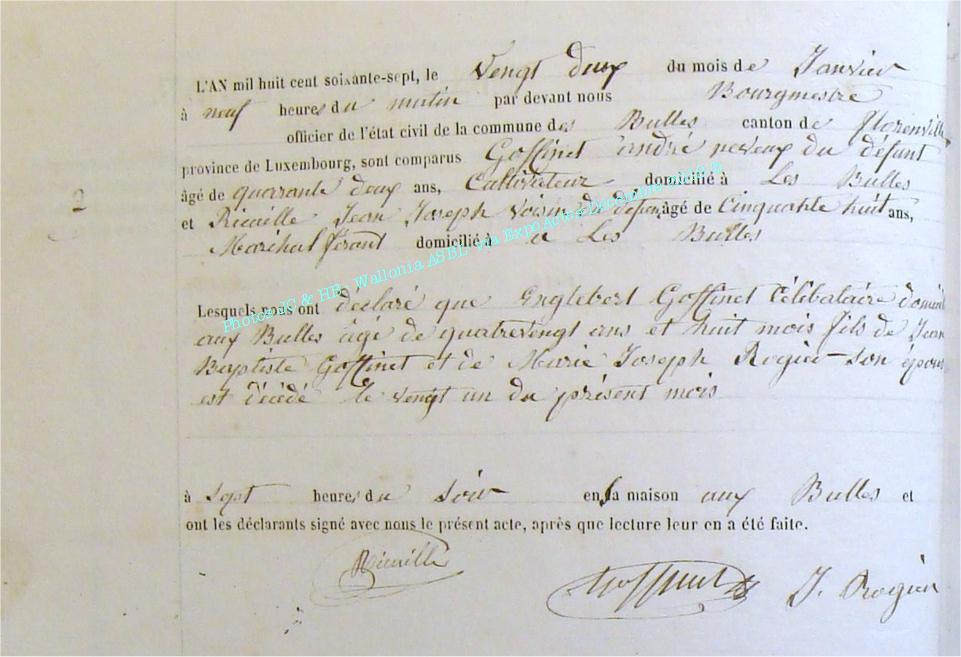 L'AN mil huit cent soixante-sept, le Vengt deux du mois de Janvier
à neuf heures du matin par devant nous Bourgmestre
officier de l'état civil de la commune des Bulles canton de florenville
province de Luxembourg, sont comparus Goffinet andré neveux du défunt
âgé de quarante deux ans, Cultivateur domicilié à Les Bulles
2
et Ricaille Jean Joseph Voisin du défunt âgé de Cinquante huit ans,
Maréchal férant domicilié à a Les Bulles
Photos JC & HB Wallonia ASBL via Expo
Lesquels nous ont déclaré que Englebert Goffinet Célibataire domicil
aux Bulles âgé de quatrevingt ans et huit mois fils de Jean
Baptiste Goffinet et de Marie Joseph Rogier son epous
est décédé le vengt un du présent mois
à sept heures du soir en sa maison aux Bulles et
ont les déclarants signé avec nous le présent acte, après que lecture leur en a été faite.
Ricaille
Goffinet
J. Rogier